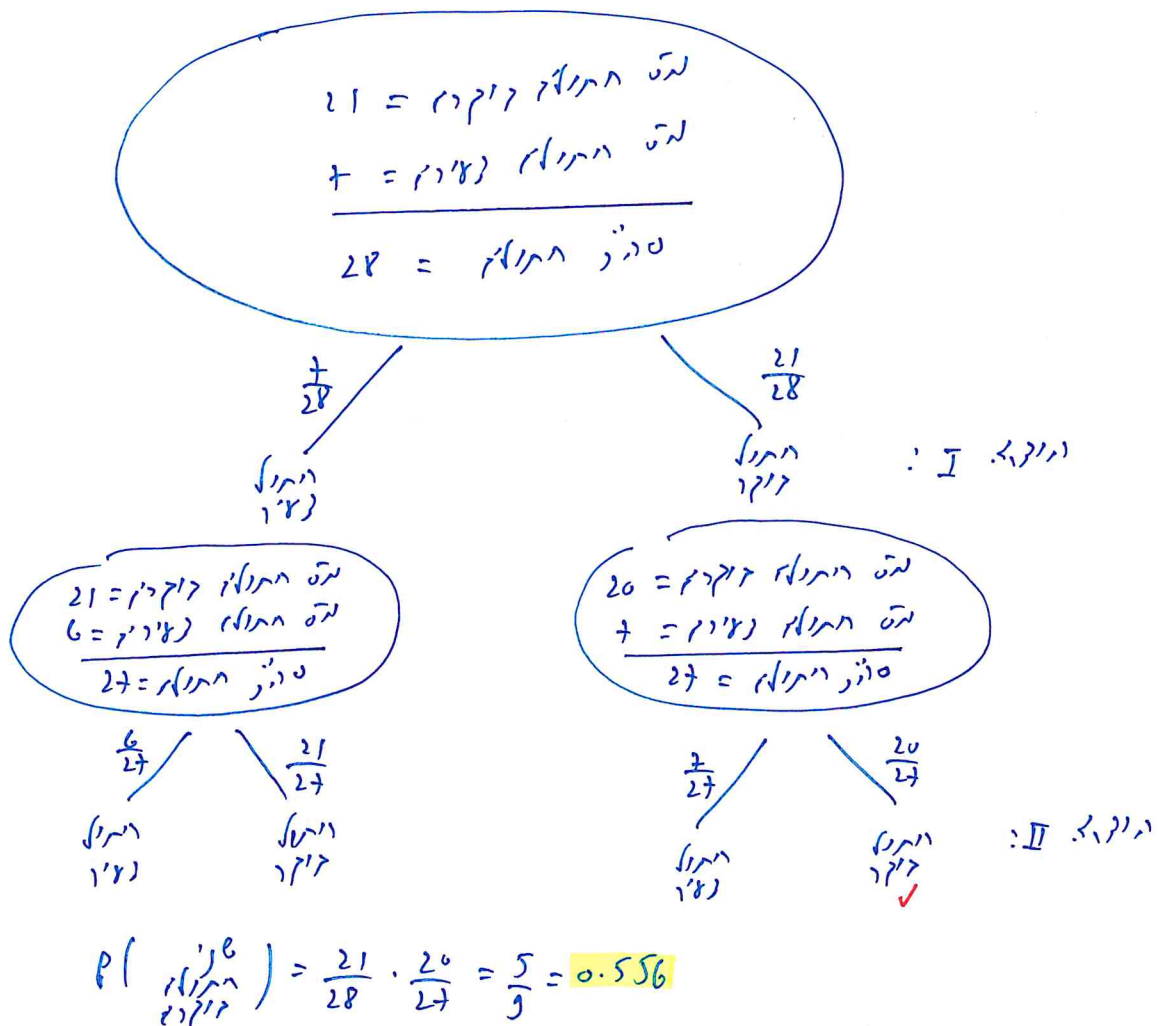 מס' חתולים בוגרים = 21
מס' חתולים צעירים = 7
סה"כ חתולים = 28
7/28
21/28
חתול
צעיר
חתול
בוגר
הוצאה I :
מס' חתולים בוגרים = 21
מס' חתולים צעירים = 6
סה"כ חתולים = 27
מס' חתולים בוגרים = 20
מס' חתולים צעירים = 7
סה"כ חתולים = 27
6/27
21/27
7/27
20/27
חתול
צעיר
חתול
בוגר
חתול
צעיר
חתול
בוגר
✓
הוצאה II :
P( שני חתולים בוגרים ) = 21/28 · 20/27 = 5/9 = 0.556